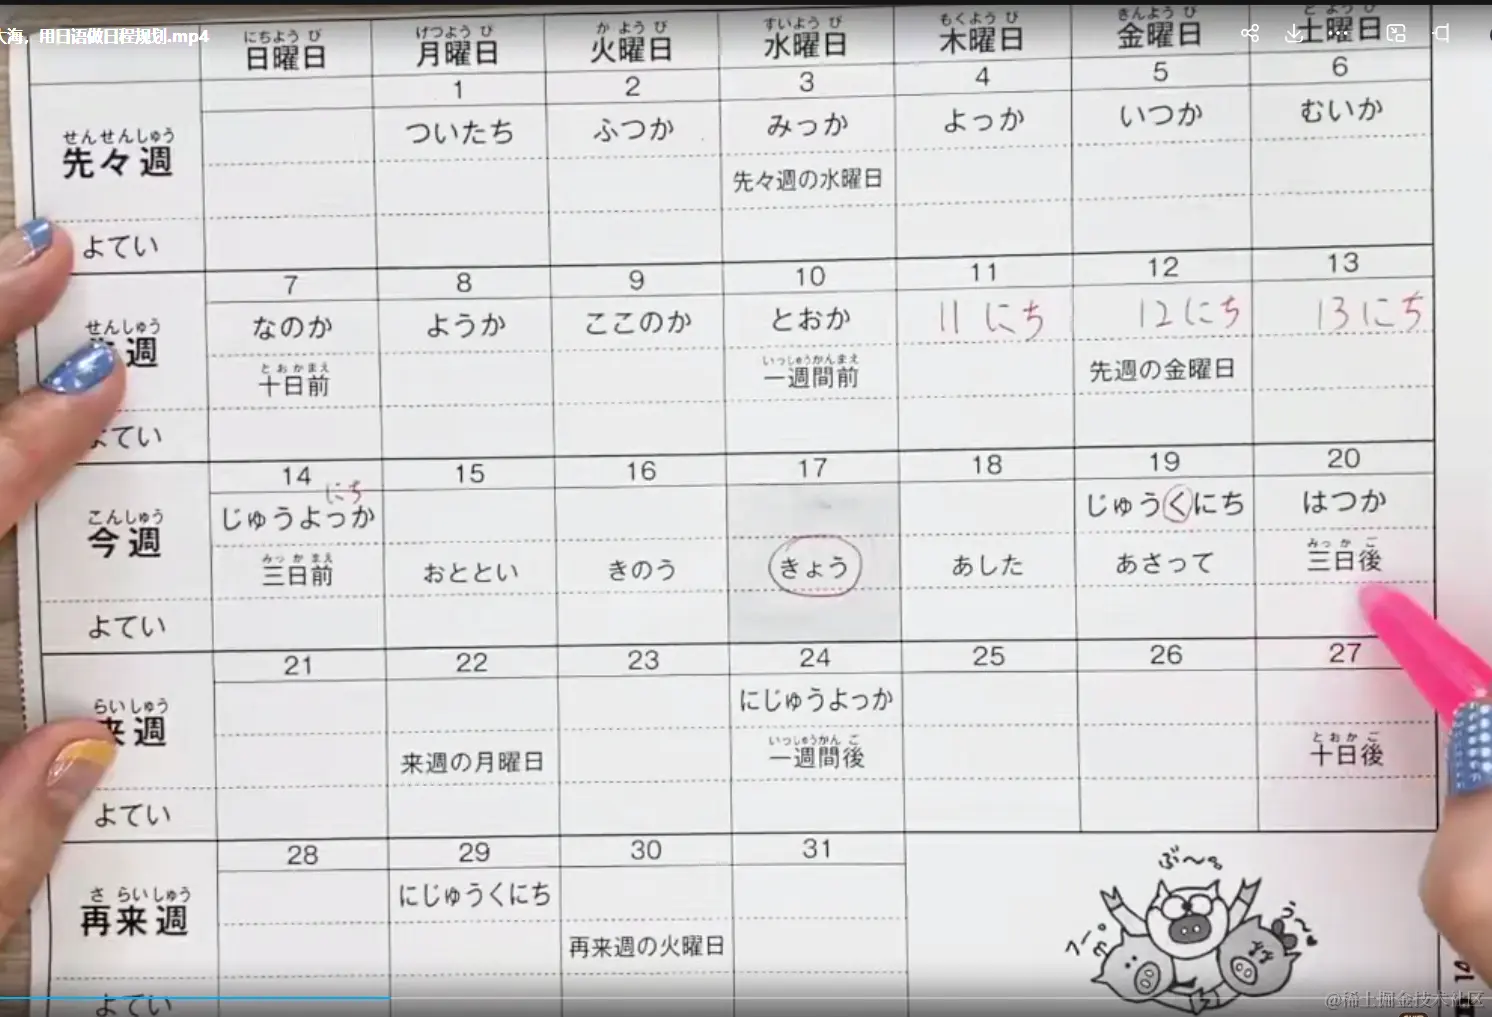 大海，用日语做日程规划.mp4
にちようび げつようび かようび すいようび もくようび きんようび どようび
日曜日 月曜日 火曜日 水曜日 木曜日 金曜日 土曜日
1 2 3 4 5 6
せんせんしゅう
先々週 ついたち ふつか みっか よっか いつか むいか
先々週の水曜日
よてい
7 8 9 10 11 12 13
せんしゅう
週 なのか ようか ここのか とおか 11にち 12にち 13にち
とおかまえ いっしゅうかんまえ
十日前 一週間前 先週の金曜日
よてい
14 15 16 17 18 19 20
にち
こんしゅう
今週 じゅうよっか じゅうくにち はつか
みっかまえ みっかご
三日前 おととい きのう きょう あした あさって 三日後
よてい
21 22 23 24 25 26 27
らいしゅう
来週 にじゅうよっか
いっしゅうかんご とおかご
来週の月曜日 一週間後 十日後
よてい
28 29 30 31
さらいしゅう
再来週 にじゅうくにち
再来週の火曜日
よてい
ぶ〜。
う〜
@稀土掘金技术社区